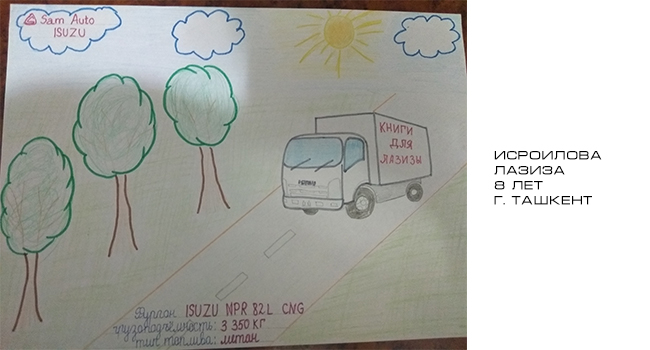 Sam Auto
ISUZU
КНИГИ
ДЛЯ
ЛАЗИЗЫ
ISUZU
Фургон ISUZU NPR 82L CNG
грузоподъёмность: 3 350 КГ
тип топлива: метан
ИСРОИЛОВА
ЛАЗИЗА
8 ЛЕТ
Г. ТАШКЕНТ